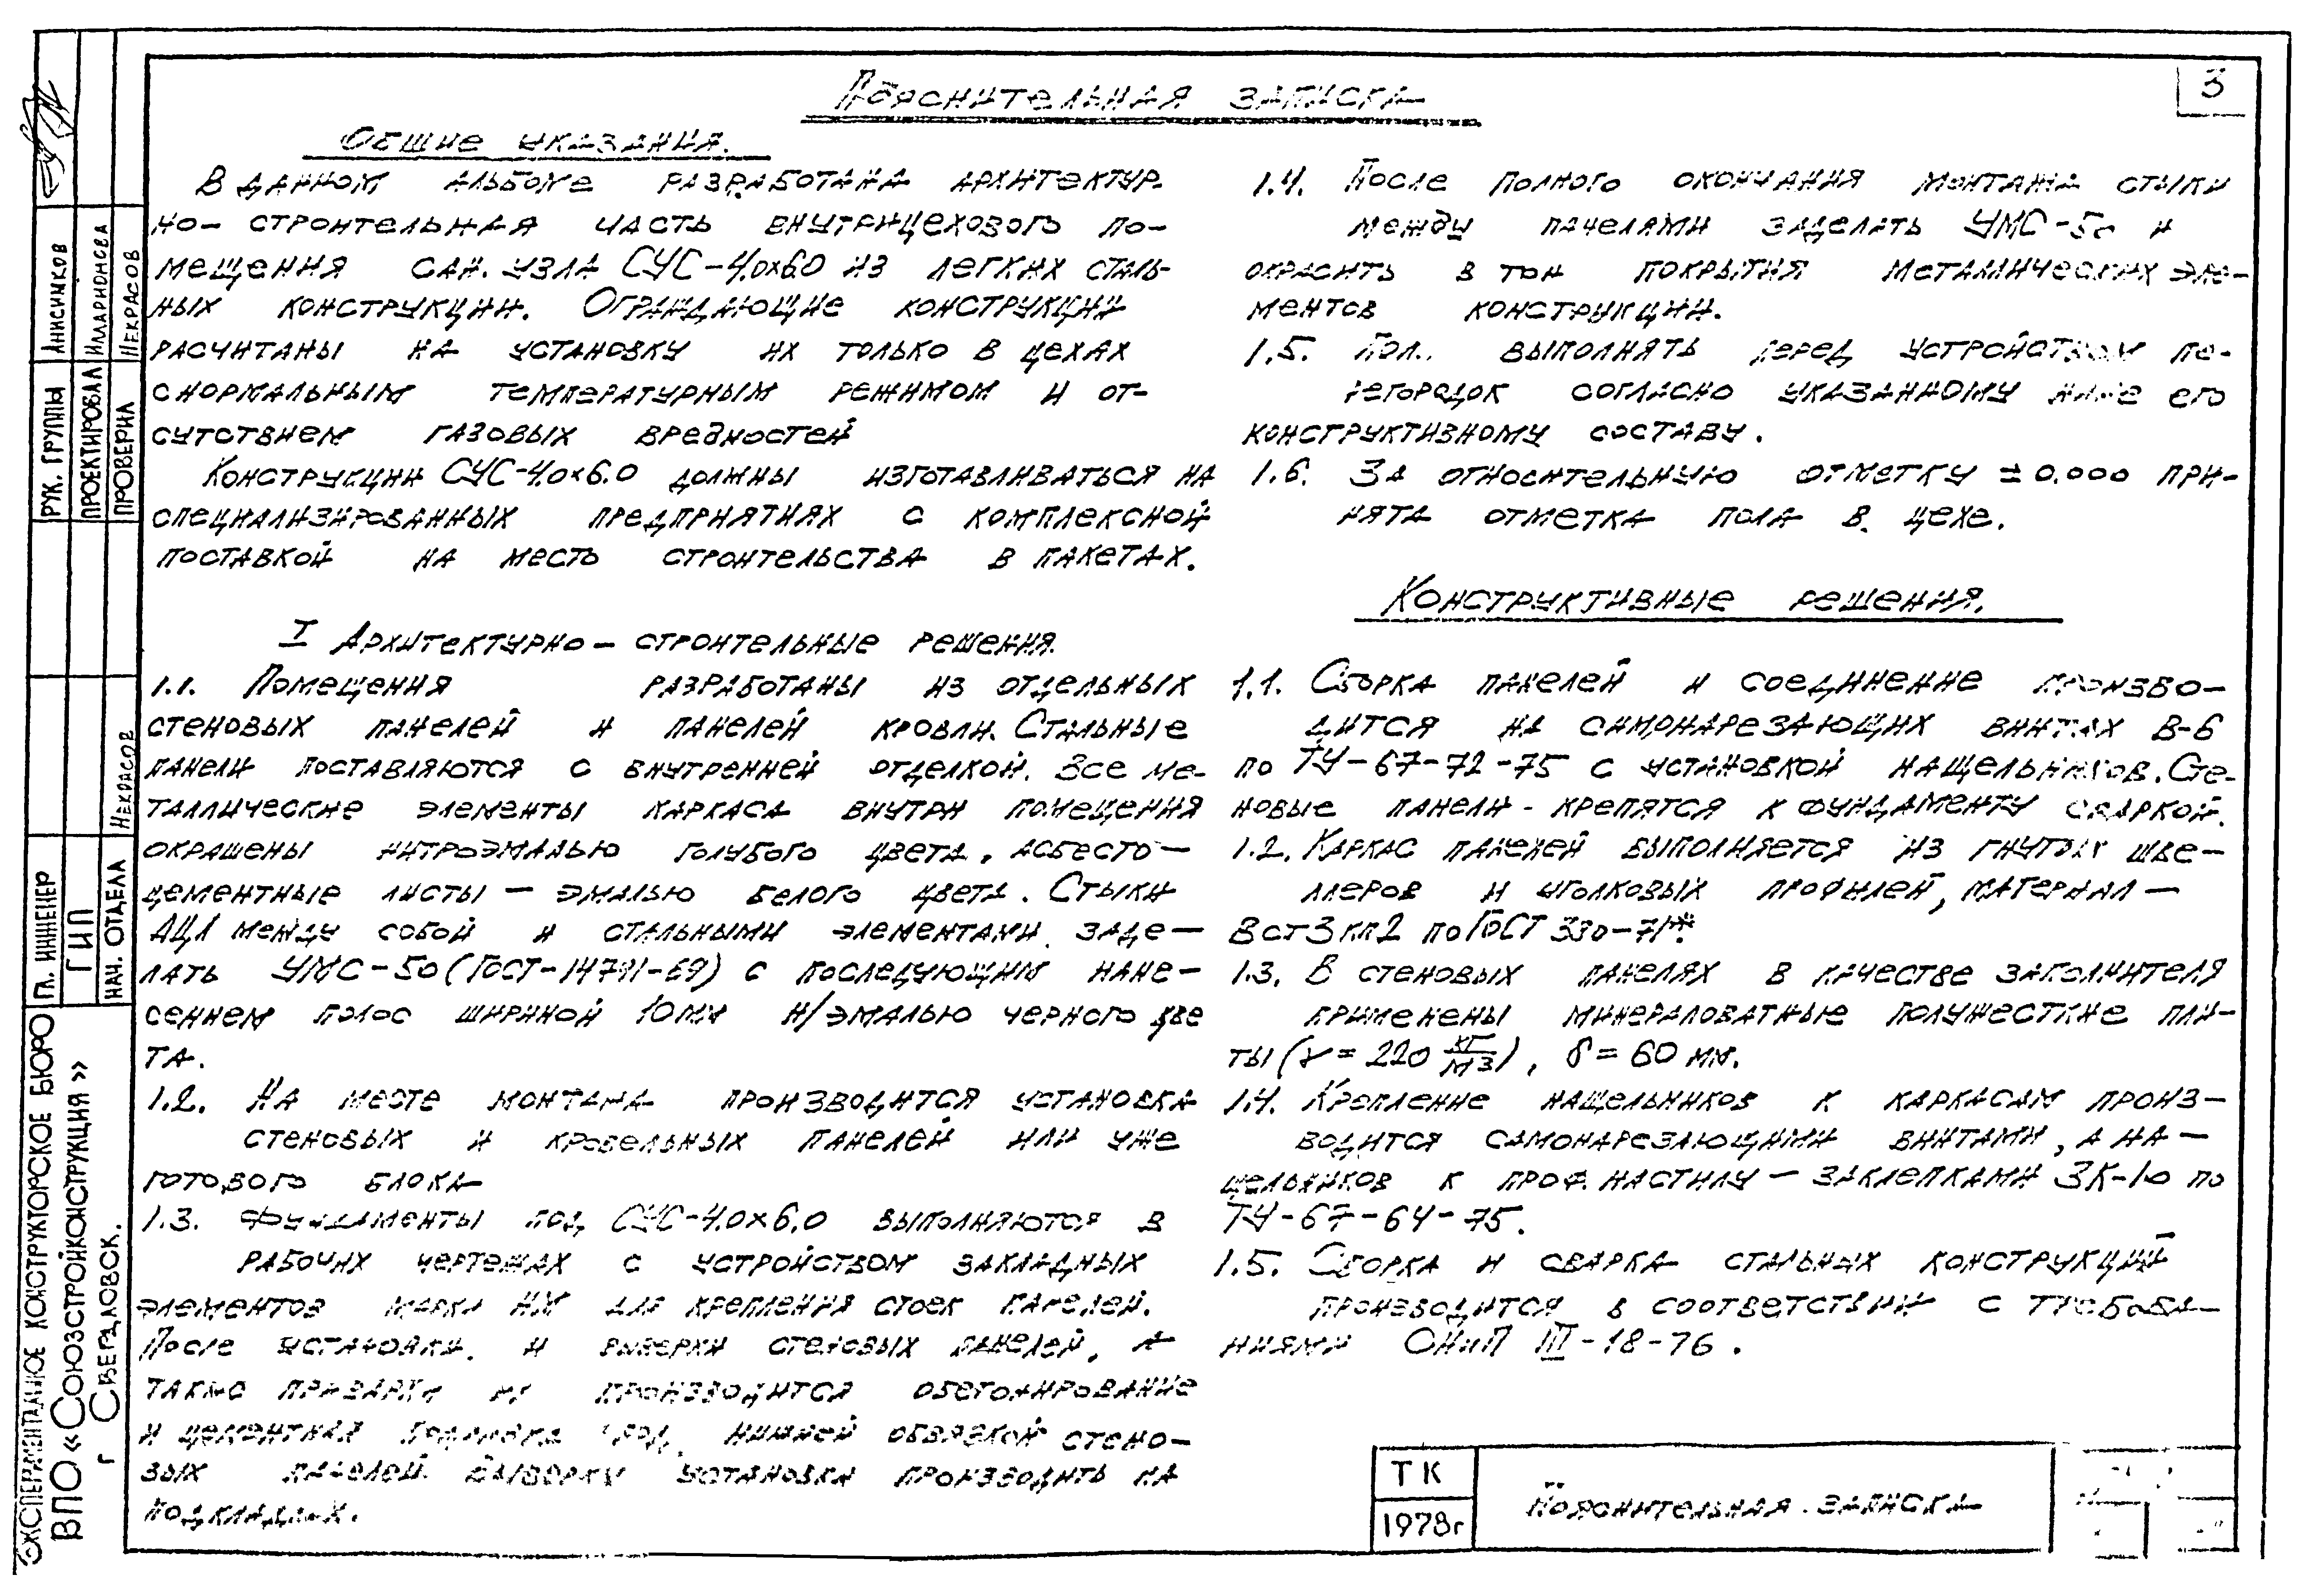 3
Пояснительная записка
Общие указания.
В данном альбоме разработана архитектур-
но-строительная часть внутрицехового по-
мещения сан. узла СУС-4,0х6.0 из легких сталь-
ных конструкции. Ограждающие конструкции
расчитаны на установку их только в цехах
с нормальным температурным режимом и от-
сутствием газовых вредностей
Конструкции СУС-4.0х6.0 должны изготавливаться на
специализированных предприятиях с комплексной
поставкой на место строительства в пакетах.
I Архитектурно-строительные решения.
1.1. Помещения разработаны из отдельных
стеновых панелей и панелей кровли. Стальные
панели поставляются с внутренней отделкой. Все ме-
таллические элементы каркаса внутри помещения
окрашены нитроэмалью голубого цвета, асбесто-
цементные листы - эмалью белого цвета. Стыки
АЦЛ между собой и стальными элементами заде-
лать УМС-50 (ГОСТ-14791-69) с последующим нане-
сением полос шириной 10мм н/эмалью черного цве
та.
1.2. На месте монтажа производится установка
стеновых и кровельных панелей или уже
готового блока
1.3. Фундаменты под СУС-4.0х6.0 выполняются в
рабочих чертежах с устройством закладных
элементов марки для крепления стоек панелей.
После установки и выверки стеновых панелей, а
также приварки производится обетонирование
и цементная подливка под нижней обвязкой стено-
вых панелей. Выверку установка производить на
подкладках.
1.4. После полного окончания монтажа стыки
между панелями заделать УМС-50 и
окрасить в тон покрытия металлических эле-
ментов конструкции.
1.5. Пол выполнять перед устройством пе-
регородок согласно указанному ниже его
конструктивному составу.
1.6. За относительную отметку ±0.000 при-
нята отметка пола в цехе.
Конструктивные решения.
1.1. Сборка панелей и соединение произво-
дится на самонарезающих винтах В-6
по ТУ-67-72-75 с установкой нащельников. Сте-
новые панели - крепятся к фундаменту сваркой.
1.2. Каркас панелей выполняется из гнутых шве-
ллеров и уголковых профилей, материал -
Вст3кп2 по ГОСТ 380-71*.
1.3. В стеновых панелях в качестве заполнителя
применены минераловатные полужесткие пли-
ты (γ = 220 кг/м3), δ = 60 мм.
1.4. Крепление нащельников к каркасам произ-
водится самонарезающими винтами, а на-
щельников к проф.настилу - заклепками ЗК-10 по
ТУ-67-64-75.
1.5. Сборка и сварка стальных конструкций
производится в соответствии с требова-
ниями СНиП III-18-76.
ТК
1978г
Пояснительная записка
Рук. группы Анисимков
Проектировал Илларионова
Проверил Некрасов
Гл. инженер
ГИП
Нач. отдела Некрасов
Экспериментальное конструкторское бюро
ВПО «Союзстройконструкция»
г Свердловск.